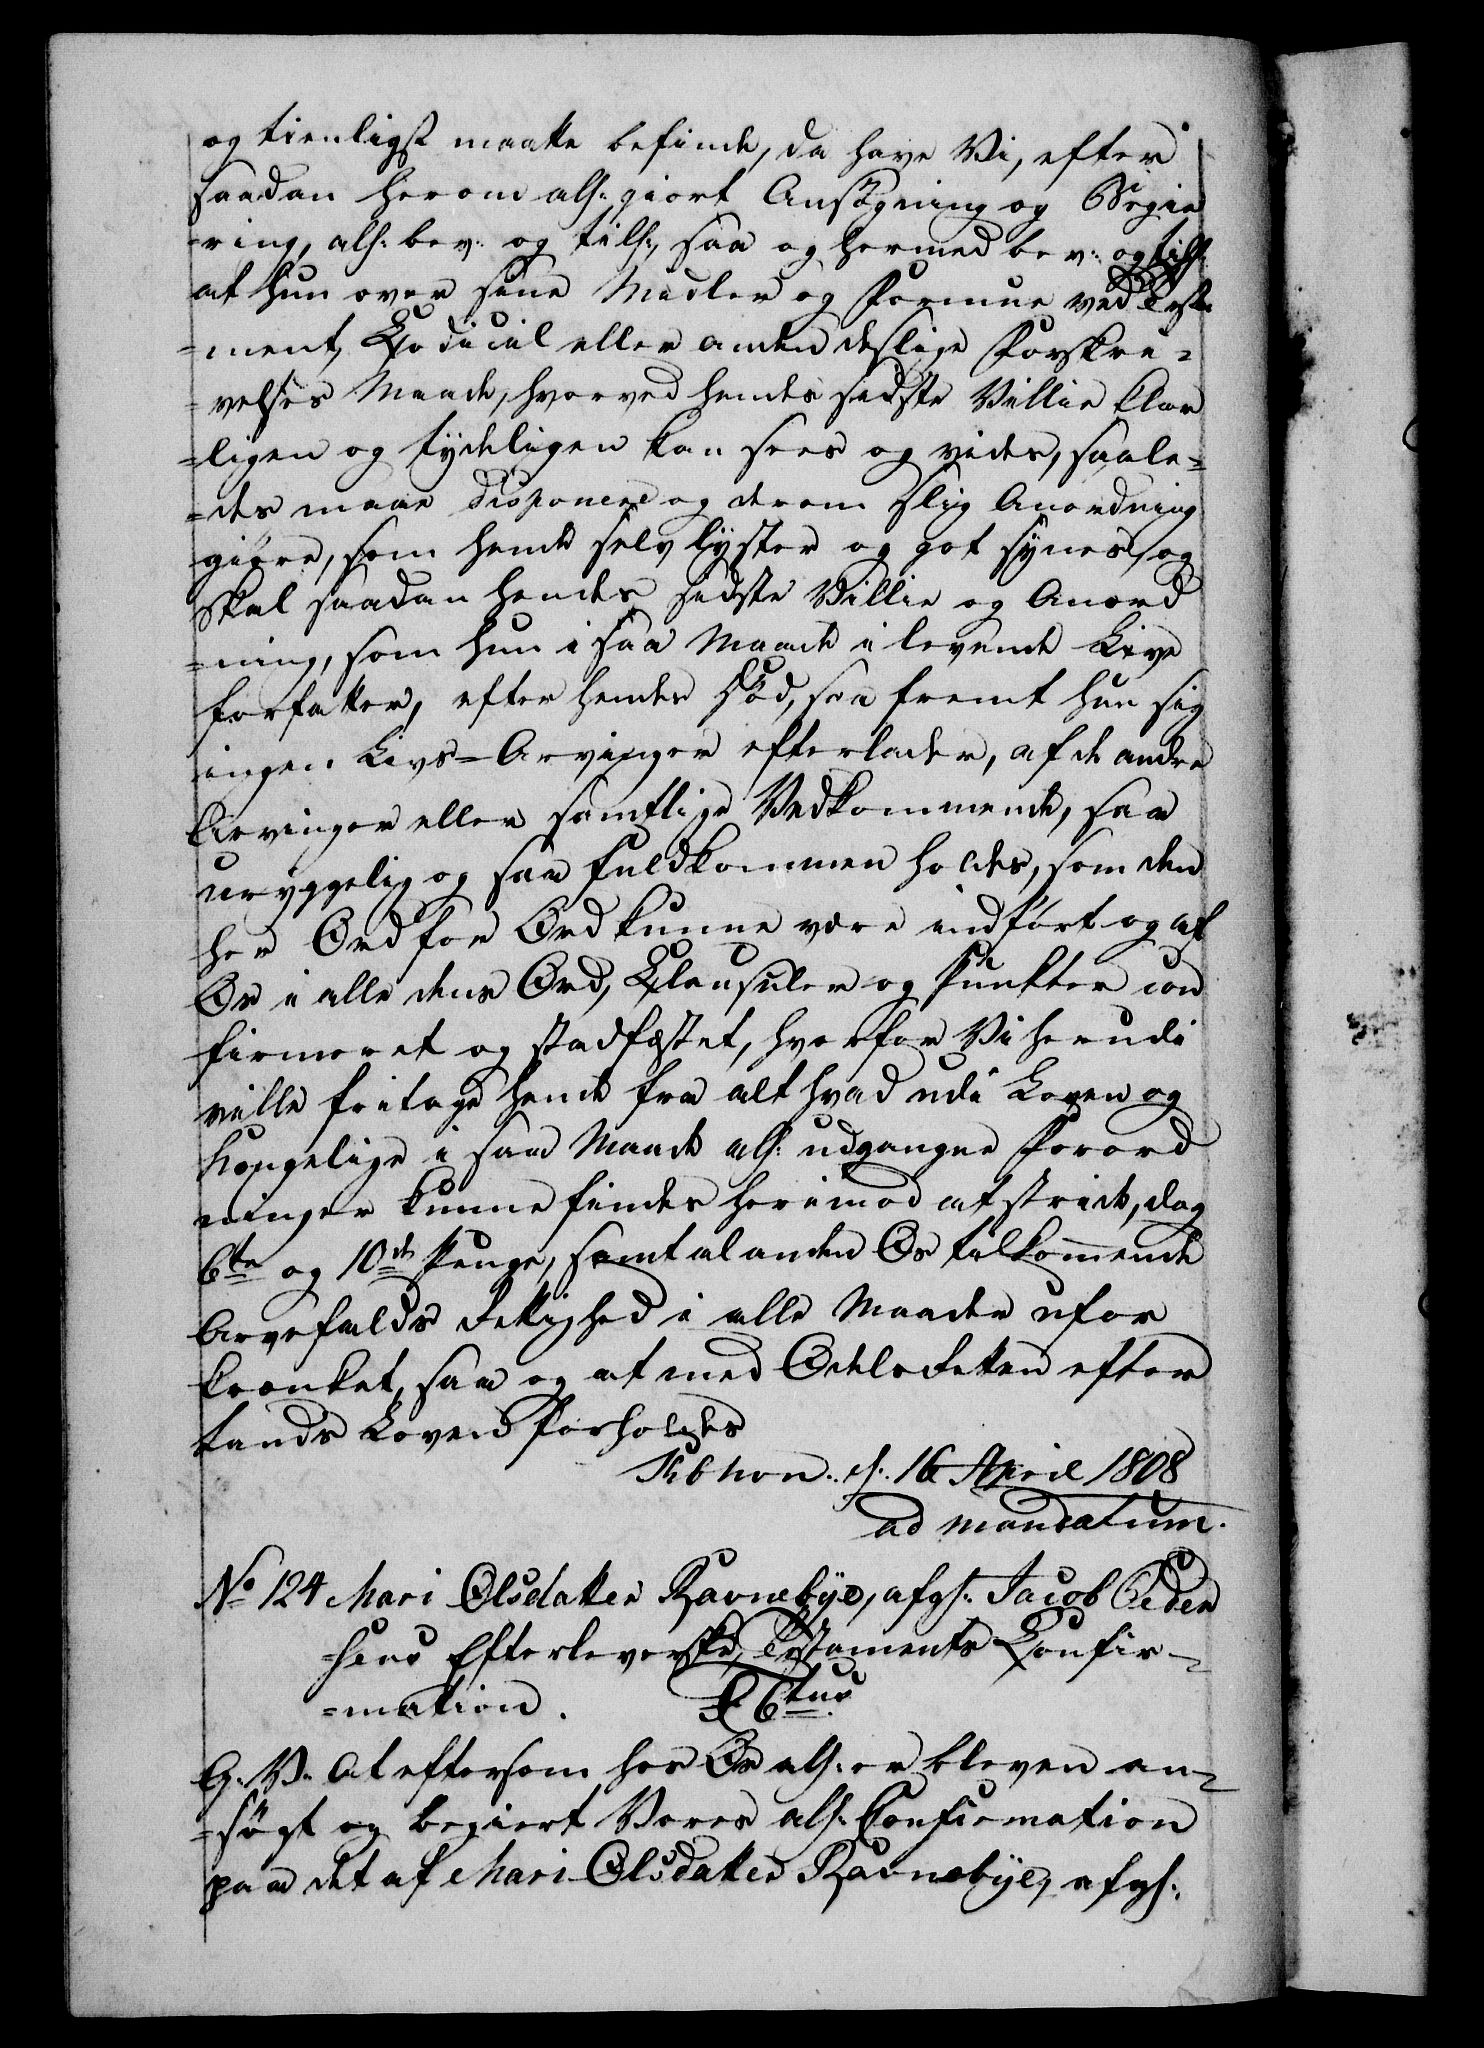 og tienligst maatte befinde, da have Vi, efter
saadan herom als: giort Ansøgning og Begie
=ring, als: bev: og tils:, saa og hermed bev: og tils:
at hun over sine Midler og Formue ved Testa
=ment, Codicil eller anden deslige Forskre=
=velses Maade, hvorved hendes sidste Villie klar
=ligen og tydeligen kan sees og vides, saale=
=des maae disponere og derom slig Anordning
giøre, som hende selv lyster og got synes, og
skal saadan hendes sidste Villie og Anord
=ning, som hun i saa Maade i levende Live
forfatter, efter hendes Død, saa fremt hun sig
ingen Livs=Arvinger efterlader, af de andre
Arvinger eller samtlige Vedkommende, saa
uryggelig og saa fuldkommen holdes, som den
her Ord for Ord kunne være indført og af
Os i alle dens Ord, Clausuler og Punkter con
firmeret og stadfæstet, hvorfor Vi herudi
ville fritage hende fra alt hvad udi Loven og
Kongelige i saa Maade als: udgangne Forord
ninger kunne findes herimod at stride, dog
6te og 10de Penge, samt al anden Os tilkommende
Arvefalds Rettighed i alle Maader ufor
krænket, saa og at med Odels Retten efter
Lands Loven forholdes
Kbhvn. d. 16 April 1808
ad mandatum.
No 124 Mari Olsdatter Ravnebye, afgs: Jacob Peder
sens Efterleverske, Testaments Confir=
=mation. 6tus
G. V. At eftersom hos Os als: er bleven an=
=søgt og begiert Vores als: Confirmation
paa det af Mari Olsdatter Ravnebye, afgs: